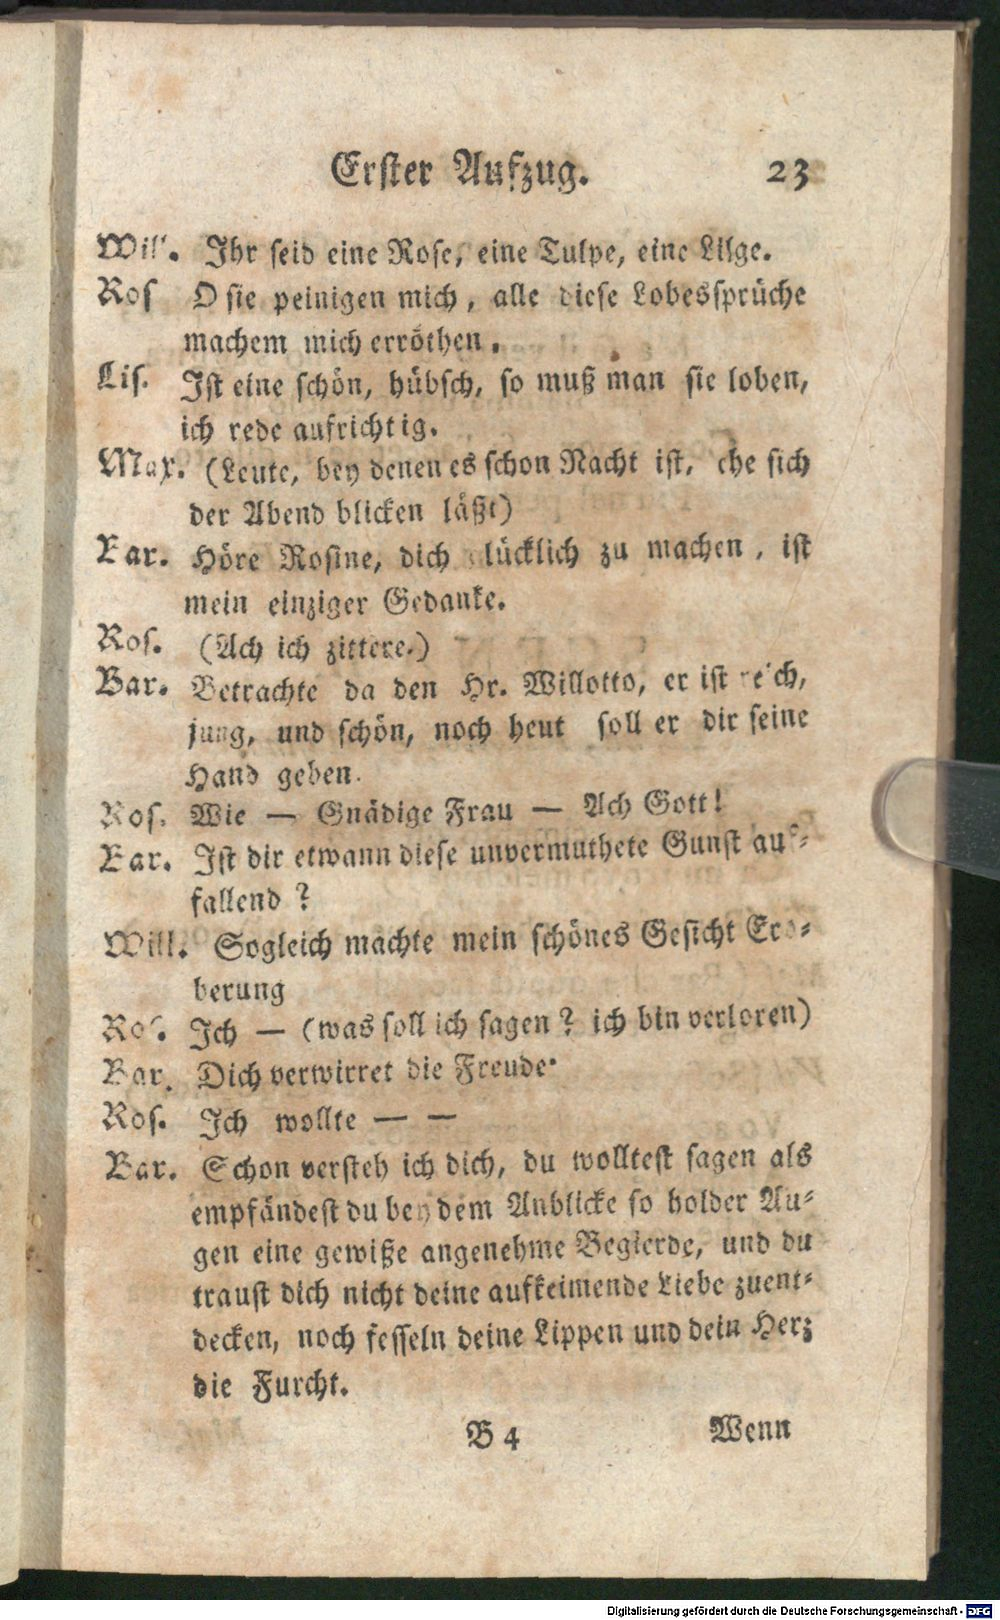 Erster Aufzug. 23
Will. Ihr seid eine Rose, eine Tulpe, eine Lilge.
Ros O sie peinigen mich, alle diese Lobessprüche
machem mich erröthen.
Lis. Ist eine schön, hübsch, so muß man sie loben,
ich rede aufrichtig.
Max. (Leute, bey denen es schon Nacht ist, ehe sich
der Abend blicken läßt)
Bar. Höre Rosine, dich glücklich zu machen, ist
mein einziger Gedanke.
Ros. (Ach ich zittere.)
Bar. Betrachte da den Hr. Willotto, er ist reich,
jung, und schön, noch heut soll er dir seine
Hand geben.
Ros. Wie — Gnädige Frau — Ach Gott!
Bar. Ist dir etwann diese unvermuthete Gunst auf-
fallend?
Will. Sogleich machte mein schönes Gesicht Ero-
berung
Ros. Ich — (was soll ich sagen? ich bin verloren)
Bar. Dich verwirret die Freude.
Ros. Ich wollte — —
Bar. Schon versteh ich dich, du wolltest sagen als
empfändest du bey dem Anblicke so holder Au-
gen eine gewiße angenehme Begierde, und du
traust dich nicht deine aufkeimende Liebe zuent-
decken, noch fesseln deine Lippen und dein Herz
die Furcht.
B 4 Wenn
Digitalisierung gefördert durch die Deutsche Forschungsgemeinschaft - DFG